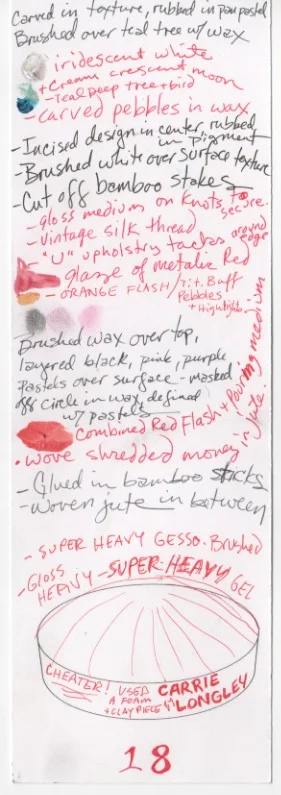 Carved in texture, rubbed in pan pastel
Brushed over teal tree w/ wax
iridescent white
+ Creamy crescent moon
- Teal Deep tree + bird
- Carved pebbles in wax
- Incised design in center, rubbed
in pigment
- Brushed white over surface texture
- Cut off bamboo stakes
- gloss medium on knots to
secure.
- Vintage silk thread
- "U" upholstry tacks around
edge
glaze of metalic Red
- ORANGE FLASH / tit. Buff
Pebbles
+ Highlights
Brushed wax over top,
layered black, pink, purple
Pastels over surface - masked
off circle in wax, defined
w/ pastels
Combined Red Flash + pouring medium
• wove shredded money in jute.
- Glued in bamboo sticks
- Woven jute in between
- SUPER HEAVY GESSO. Brushed
- Gloss
HEAVY - SUPER-HEAVY GEL
CHEATER! USED
A FOAM
+ CLAY PIECE
CARRIE
LONGLEY
18